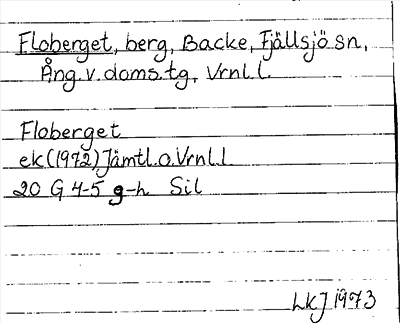 Floberget, berg, Backe, Fjällsjö sn,
Ång. v. doms. tg, Vrnl. l.
Floberget
ek (1972) Jämtl. o. Vrnl. l
20 G 4-5 g-h Sil
LKJ 1973